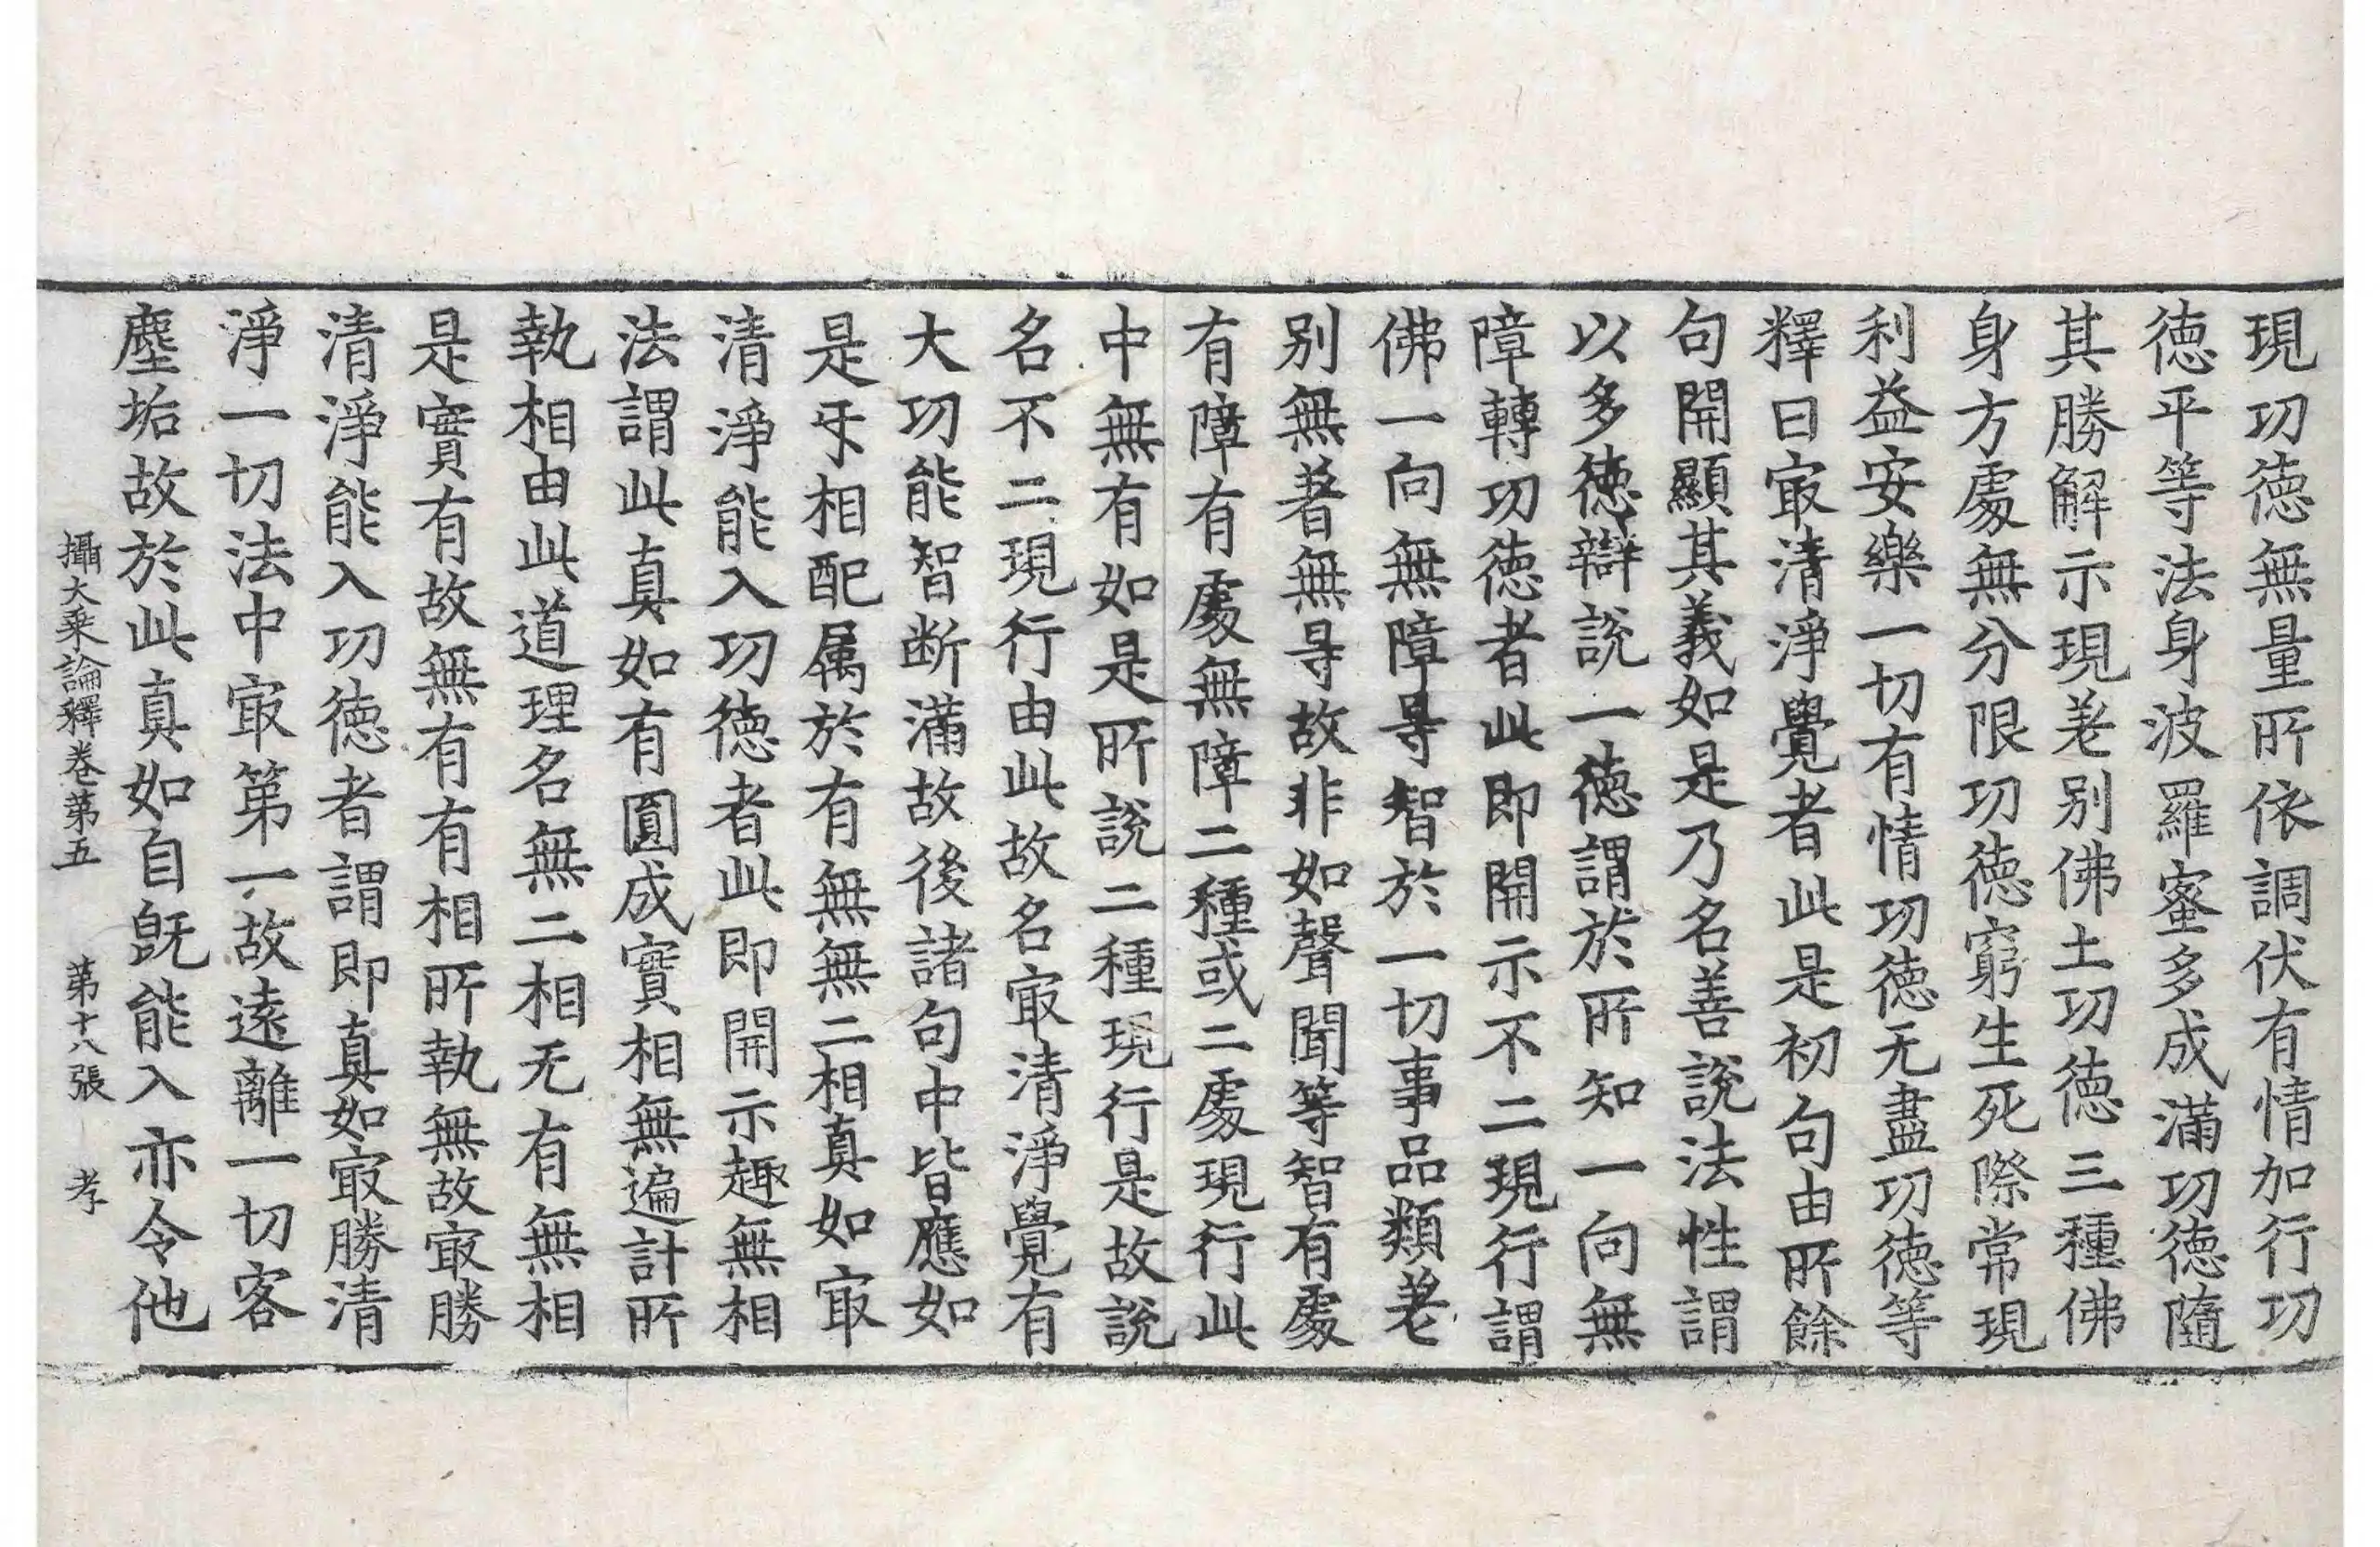 現功徳無量所依調伏有情加行功
徳平等法身波羅蜜多成滿功徳隨
其勝解示現差别佛土功徳三種佛
身方處無分限功徳窮生死際常現
利益安樂一切有情功徳无盡功徳等
釋曰㝡清淨覺者此是初句由所餘
句開顯其義如是乃名善說法性謂
以多徳辯說一徳謂於所知一向無
障轉功徳者此即開示不二現行謂
佛一向無障㝵智於一切事品類差
别無著無㝵故非如聲聞等智有處
有障有處無障二種或二處現行此
中無有如是所說二種現行是故說
名不二現行由此故名㝡清淨覺有
大功能智断滿故後諸句中皆應如
是㸦相配属於有無無二相真如㝡
清淨能入功徳者此即開示趣無相
法謂此真如有圓成實相無遍計所
執相由此道理名無二相无有無相
是實有故無有有相所執無故㝡勝
清淨能入功徳者謂即真如㝡勝清
淨一切法中㝡第一故遠離一切客
塵垢故於此真如自旣能入亦令他
攝大乗論釋卷第五 第十八張 孝